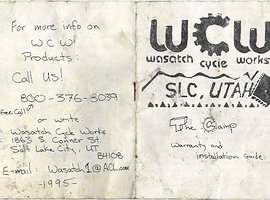 For more info on
WCW
Products:
Call Us!
800-376-8039
free call
or write:
Wasatch Cycle Works
1863 S. Conner St.
Salt Lake City, UT
84108
E-mail: Wasatch1@AOL.com
-1995-
WCW
wasatch cycle works
SLC, UTAH
The Clamp
Warranty and
installation Guide